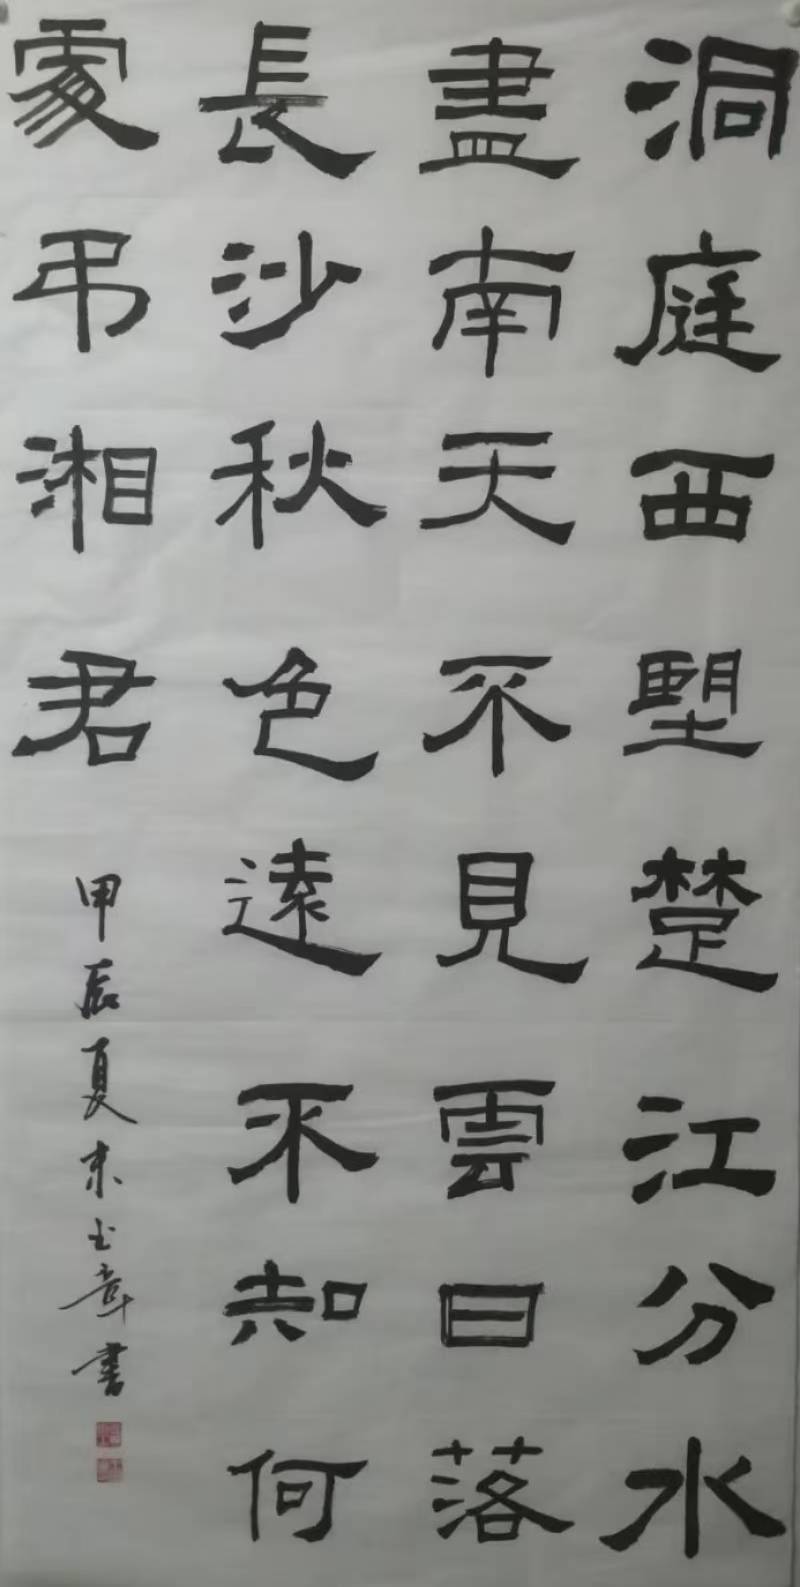 洞庭西朢楚江分水
盡南天不見雲日落
長沙秋色遠不知何
處弔湘君
甲辰夏玉章書